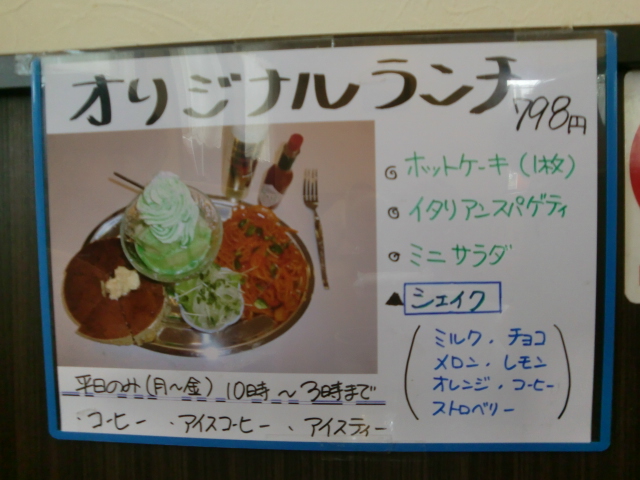 オリジナルランチ 798円
◎ ホットケーキ(1枚)
◎ イタリアンスパゲティ
◎ ミニサラダ
▲ シェイク
(ミルク・チョコ
メロン・レモン
オレンジ・コーヒー
ストロベリー)
平日のみ(月〜金) 10時〜3時まで
・コーヒー ・アイスコーヒー ・アイスティー